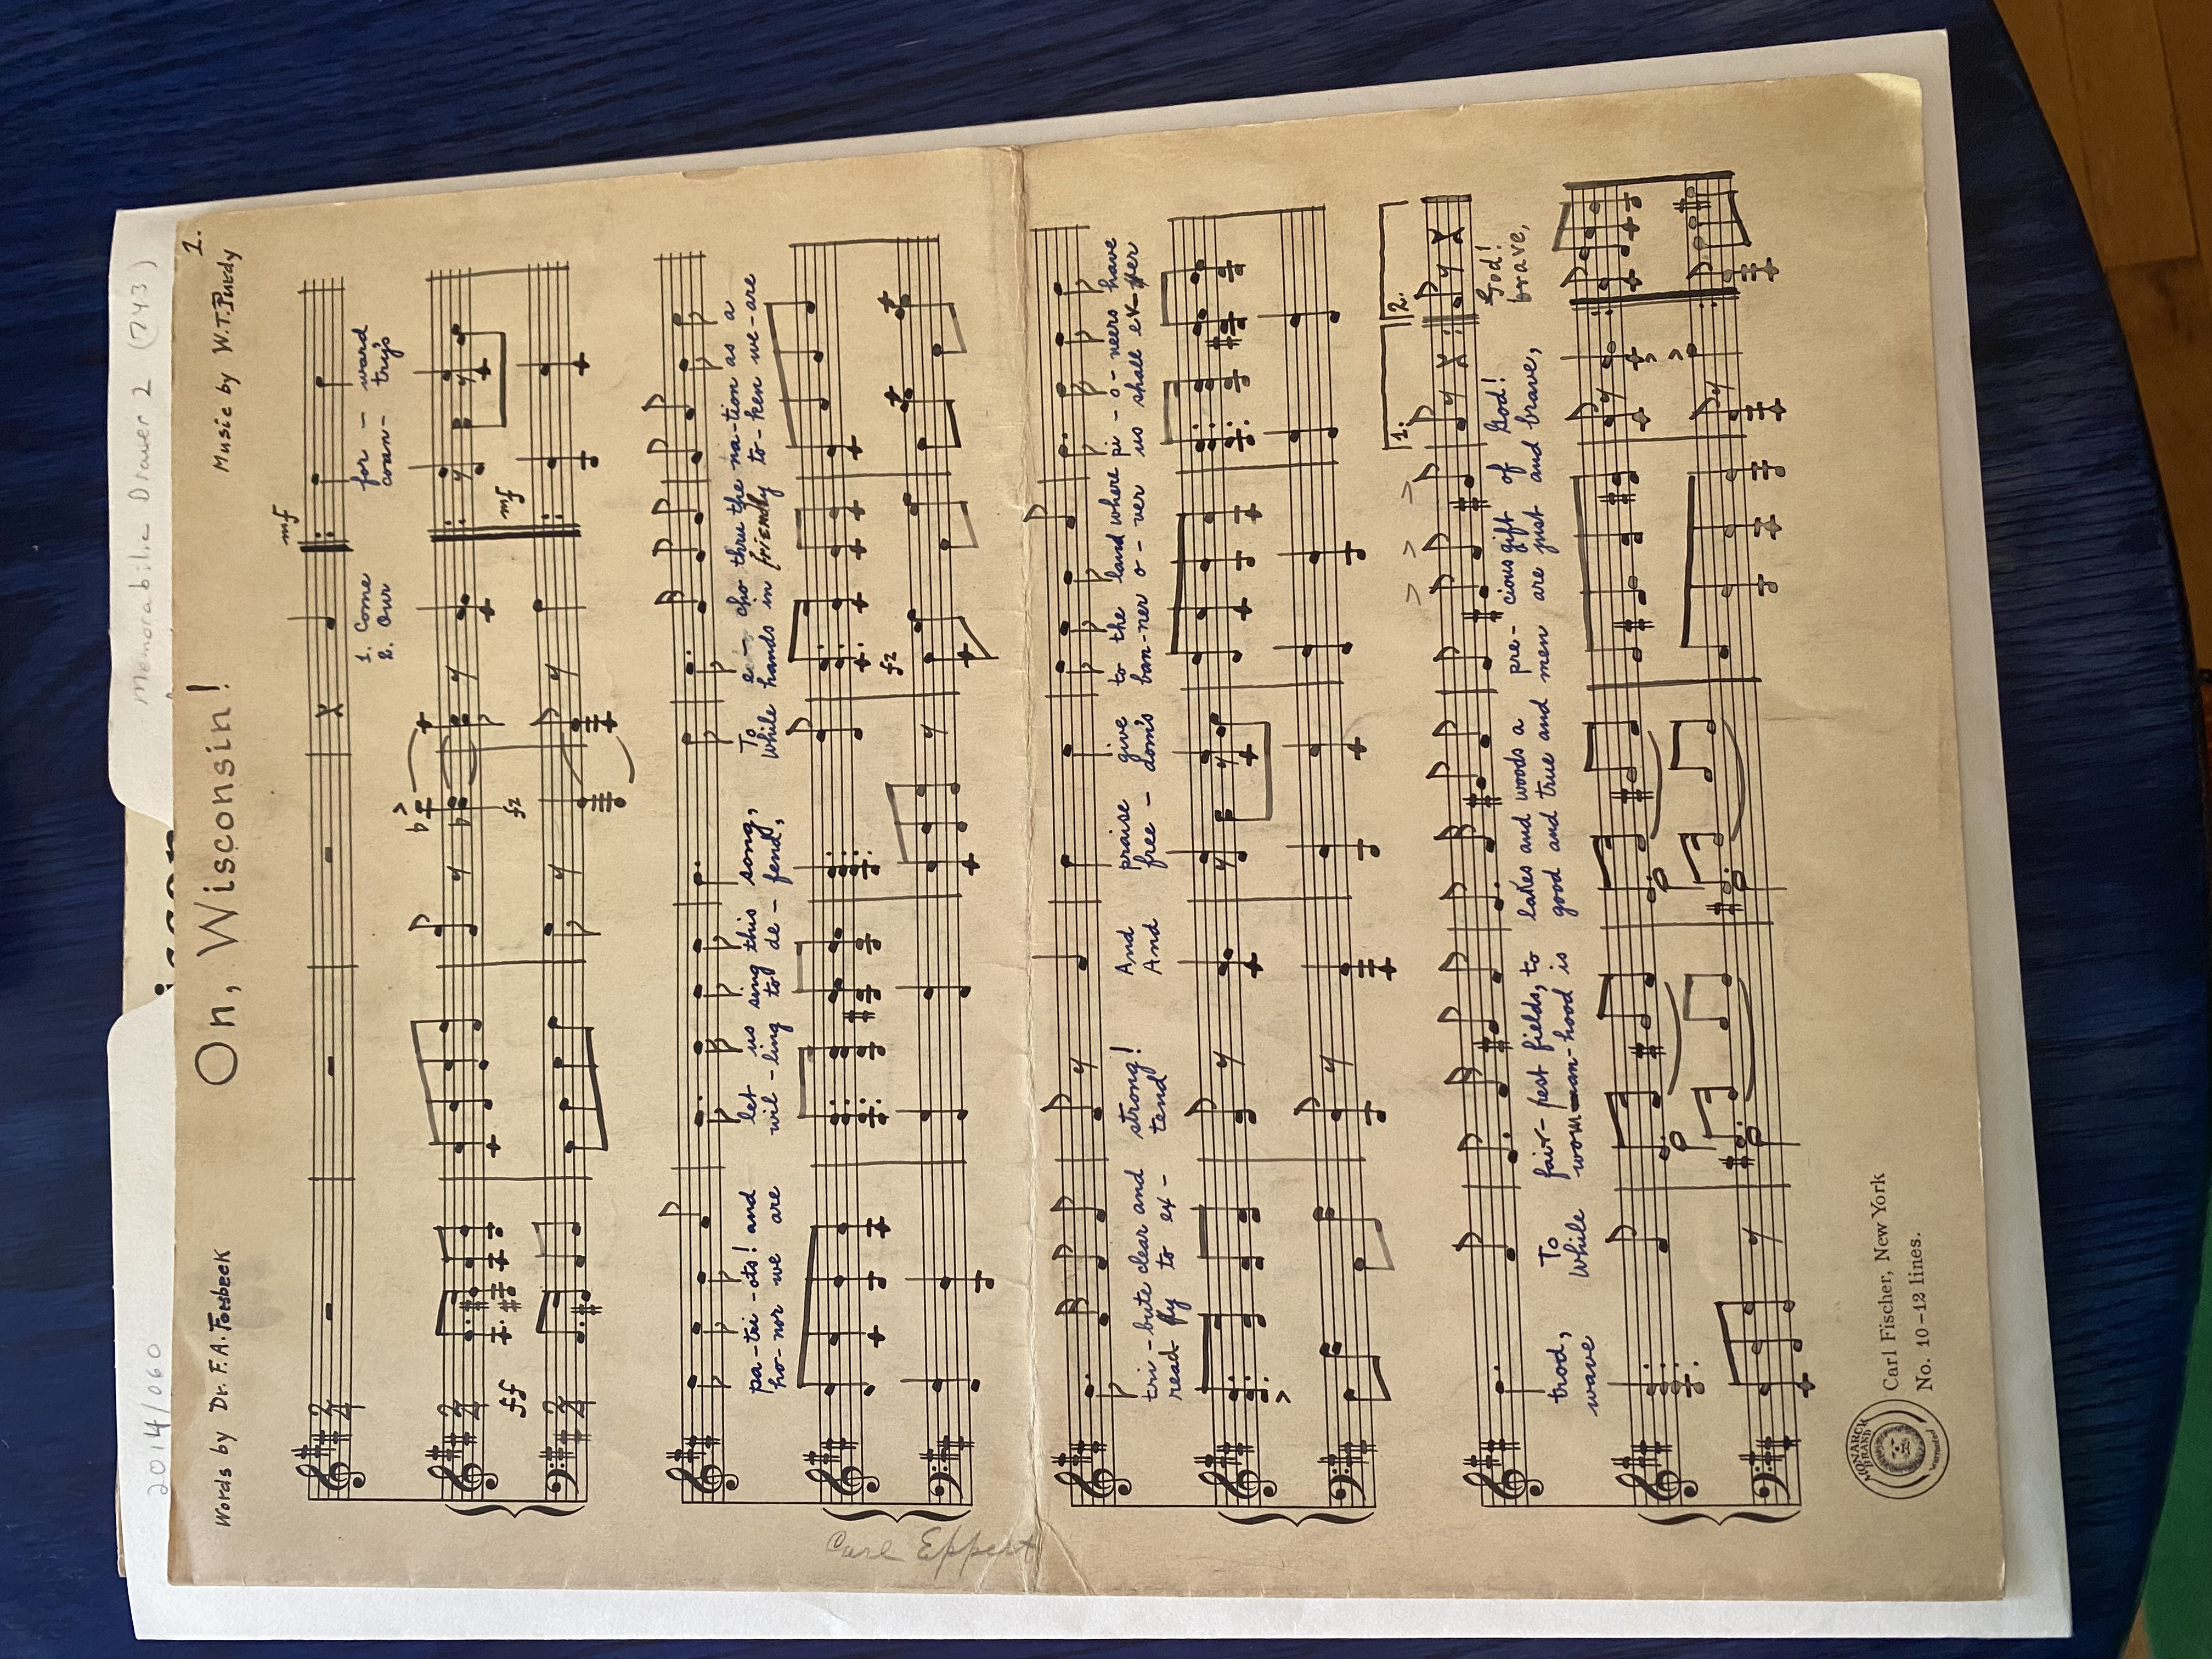 2014/060
Memorabilia Drawer 2 (743)
1.
On, Wisconsin!
Words by Dr. F.A. Fonsbeek
Music by W.T. Purdy
mf
1. Come for - ward
2. Our coun - try's
ff
fz
mf
pa - tri - ots! and let us sing this song, To e - cho thru the na - tion as a
ho - nor we are wil - ling to de - fend, While hands in friendly to - ken we - are
fz
Carl Eppert
tri - bute clear and strong! And praise give to the land where pi - o - neers have
read - fy to ex - tend And free - dom's ban - ner o - ver us shall ev - er
1. 2.
trod, To fair - pest fields, to lakes and woods a pre - cious gift of God! God!
wave While woman - hood is good and true and men are just and brave, brave,
MONARCH BRAND
Warranted
Carl Fischer, New York
No. 10-12 lines.